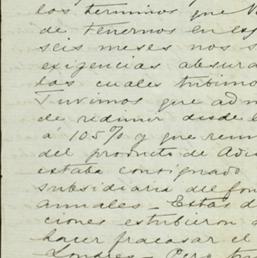 los terminos que V
de tenernos en esp
seis meses nos s
exigencias absurd
las cuales tubimo
Tuvimos que adm
de redimir desde l
á 105% y que reun
del producto de Adu
estaba consignado
subsidiaria del fon
annales - Estas d
ciones estubieron a
hacer fracasar el
Londres - Pero tan